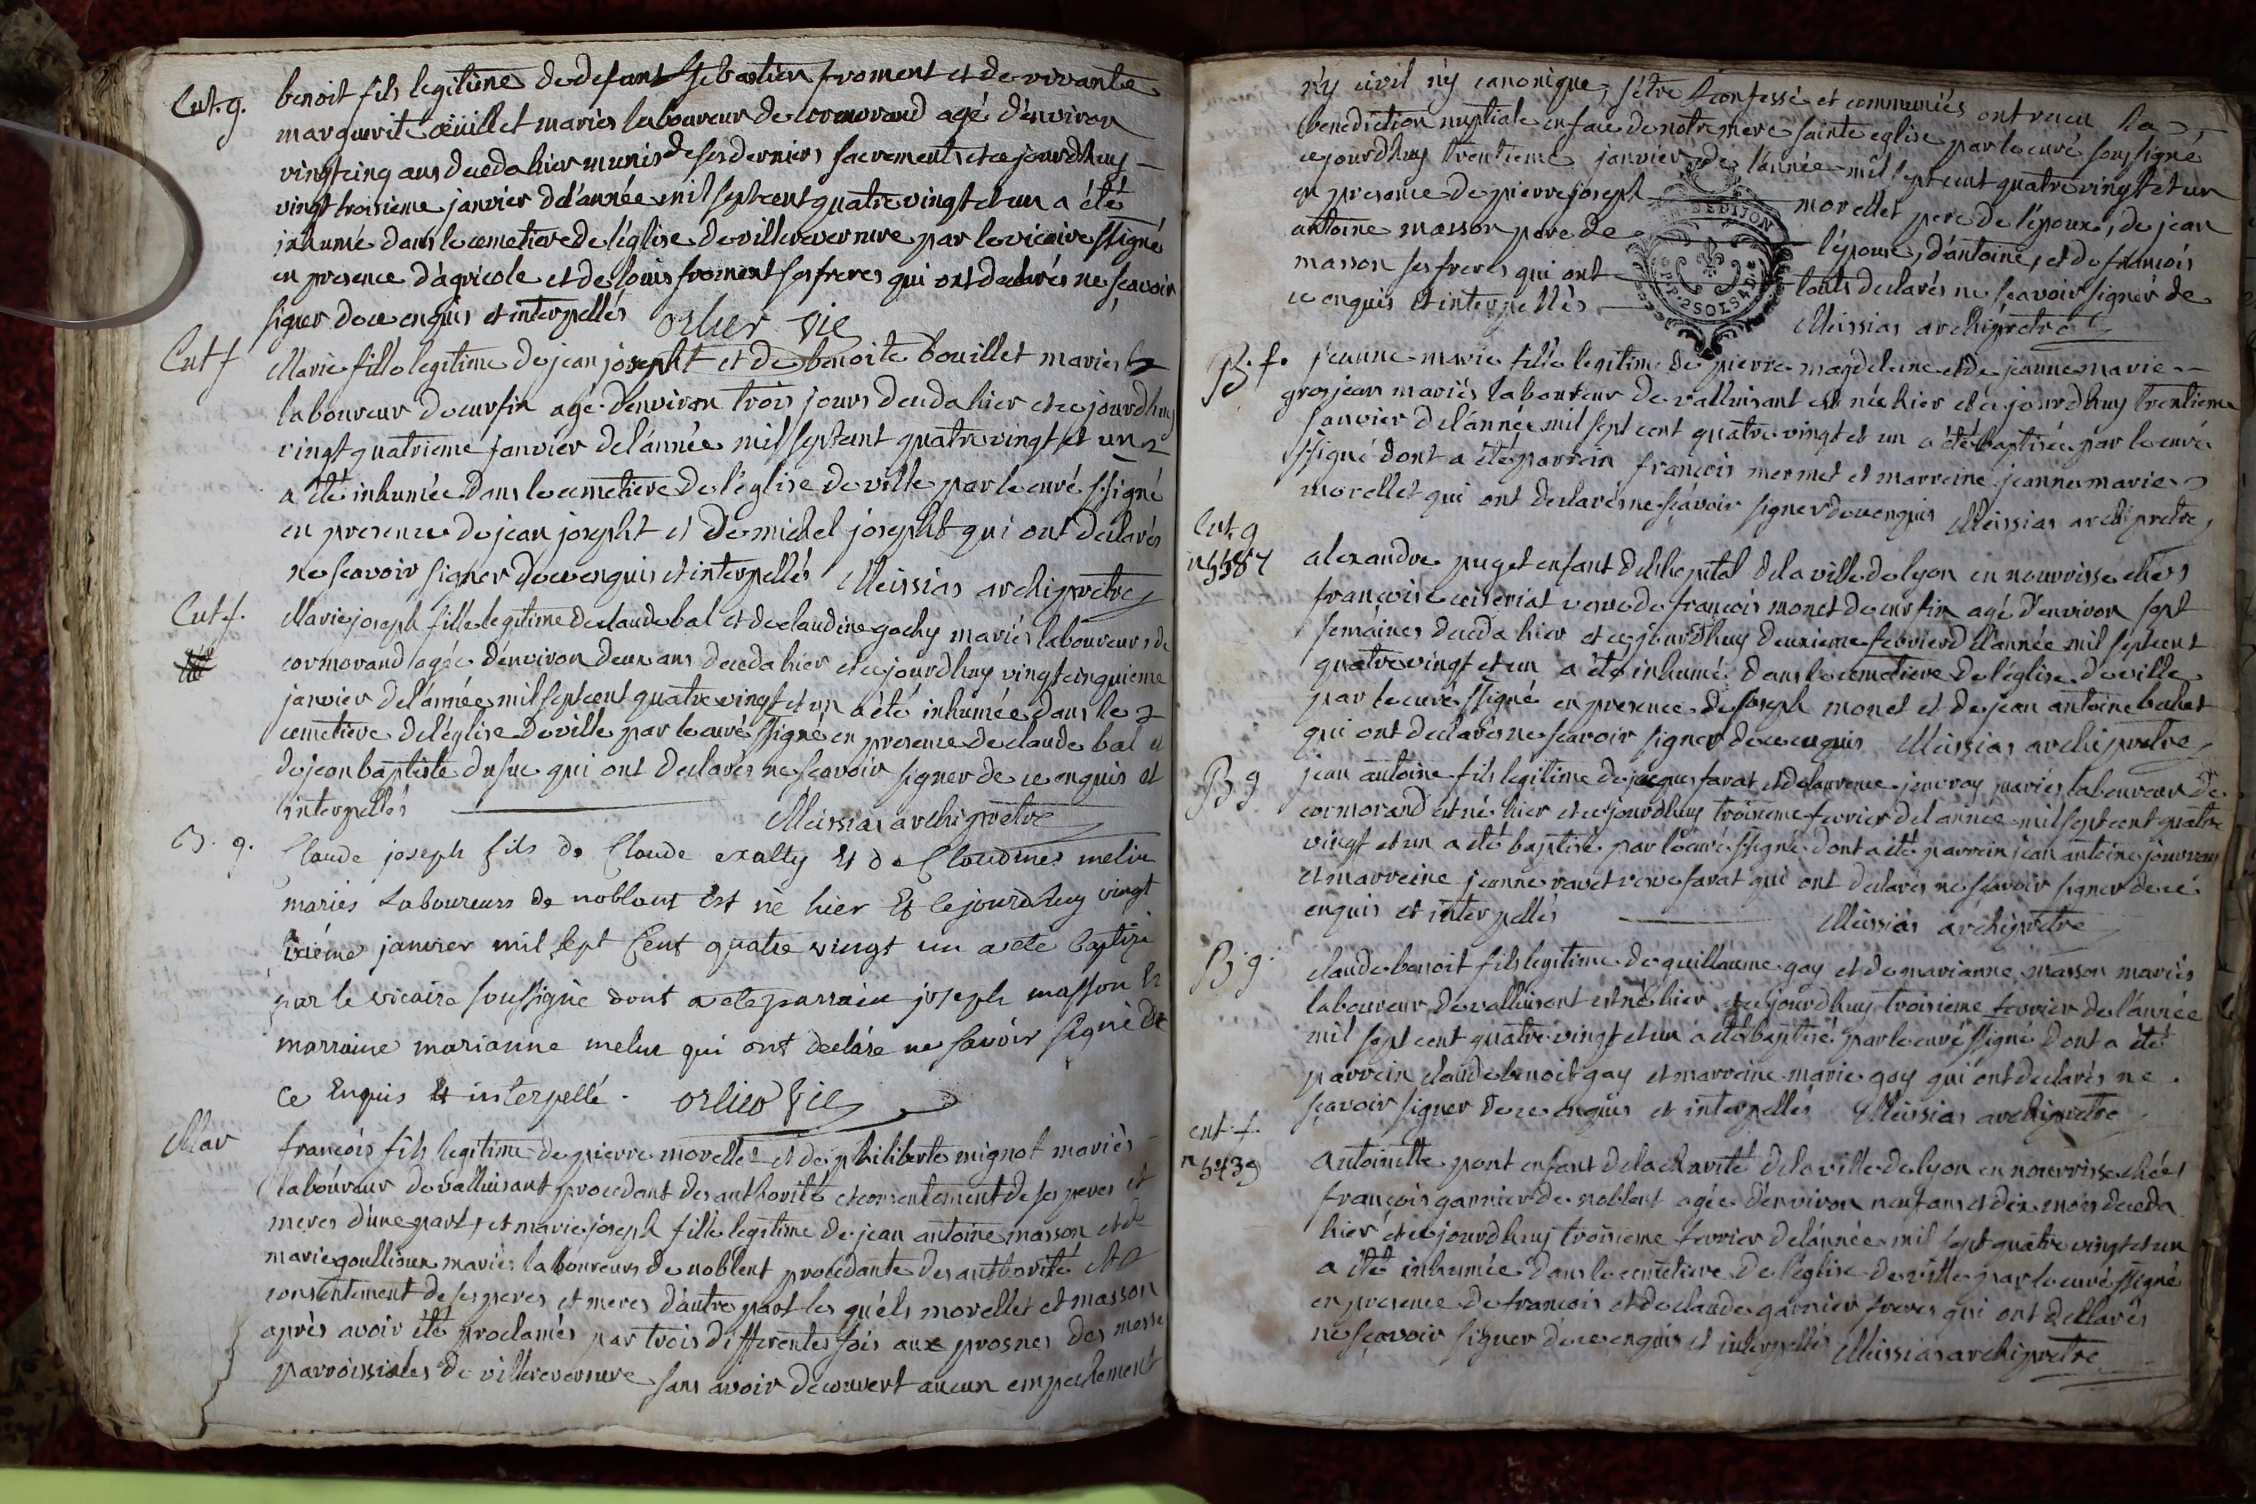 Ent. g.
benoit fils legitime de defunt Sebastien froment et de vivante
marguerite œüillet mariés laboureur de cormorand agé d'environ
vingt cinq ans deceda hier munis de ses derniers sacrements et ce jourdhuy
vingt troisieme janvier de l'année mil sept cent quatre vingt et un a été
inhumé dans le cemetiere de l'église de villereversure par le vicaire ssigné
en presence d'agricole et de louis froment ses freres qui ont declarés ne sçavoir
signer de ce enquis et interpellés orlier vic
Ent f
Marie fille legitime de jean josepht et de benoite bouillet mariés
laboureur de curfin agé d'environ trois jours deceda hier et ce jourdhuy
vingt quatrieme janvier de l'année mil sept cent quatre vingt et un
a été inhumée dans le cemetiere de l'église de ville par le curé ssigné
en presence de jean josepht et de michel josepht qui ont declarés
ne scavoir signer de ce enquis et interpellés Meissias archipretre
Ent. f.
Marie joseph fille legitime de claude bal et de claudine gochy mariés laboureurs de
cormorand agée d'environ deux ans deceda hier et ce jourdhuy vingt cinquieme
janvier de l'année mil sept cent quatre vingt et un a été inhumée dans le
cemetiere de l'église de ville par le curé ssigné en presence de claude bal et
de jean baptiste dufuc qui ont declarés ne scavoir signer de ce enquis et
interpellés Meissias archipretre
B. g.
Claude joseph fils de Claude exalty Et de Claudine melin
mariés Laboureurs de noblent Est né hier Et cejourdhuy vingt
janvier mil sept Cent quatre vingt un a eté baptisé
par le vicaire soussigné dont a eté parrain joseph masson Et
marraine marianne melin qui ont declaré ne savoir signé de
ce Enquis Et interpellé. orlier vic
Mar
françois fils legitime de pierre morellet et de philiberte mignot mariés
laboureur de valluisant procedant des authorité et consentement de ses peres et
meres d'une part, et marie joseph fille legitime de jean antoine masson et de
marie goullioux mariés laboureurs de noblent procedante des authorité et
consentement de ses peres et meres d'autre part les quels morellet et masson
après avoir été proclamés par trois differentes fois aux prosnes des messe
parroissiales de villereversure sans avoir decouvert aucun empechement
n'y civil n'y canonique, s'être confessé et communiés ont recu la
benediction nuptiale en face de notre mere sainte eglise par le curé soussigné
cejourdhuy trentieme janvier de l'année mil sept cent quatre vingt et un
en presence de pierre joseph morellet pere de l'epoux, de jean
antoine masson pere de l'épouse, d'antoine, et de françois
masson ses freres qui ont touts declarés ne scavoir signer de
ce enquis et interpellés Meissias archipretre
DE DIJON
P.P. 2 SOLS 4 D
B. f.
jeanne marie fille legitime de pierre magdeleine et de jeanne marie
grosjean mariés laboureur de valluisant est née hier et ce jourdhuy trentieme
janvier de l'année mil sept cent quatre vingt et un a été baptisée par le curé
ssigné dont a été parrain françois mermet et marreine jeanne marie
morellet qui ont declarés ne sçavoir signer de ce enquis Meissias archipretre
Ent. g
n 5387
alexandre puget enfant de l'hopital de la ville de lyon en nourrisse chés
françoise ceiseriat veuve de françois monet de curfin agé d'environ sept
semaines deceda hier et ce jourdhuy deuxieme fevrier de l'année mil sept cent
quatre vingt et un a été inhumé dans le cemetiere de l'église de ville
par le curé ssigné en presence de joseph monet et de jean antoine bachet
qui ont declarés ne scavoir signer de ce enquis Meissias archipretre
B g
jean antoine fils legitime de jacques favat et de laurence jouvray mariés laboureur de
cormorand est né hier et ce jourdhuy troisieme fevrier de l'année mil sept cent quatre
vingt et un a été baptisé par le curé ssigné dont a été parrain jean antoine jouvray
et marreine jeanne ravet veuve favat qui ont declarés ne scavoir signer de ce
enquis et interpellés Meissias archipretre
B. g.
claude benoit fils legitime de guillaume gay et de marianne masson mariés
laboureur de valluisant est né hier et ce jourdhuy troisieme fevrier de l'année
mil sept cent quatre vingt et un a été baptisé par le curé ssigné dont a été
parrein claude benoit gay et marreine marie gay qui ont declarés ne
sçavoir signer de ce enquis et interpellés Meissias archipretre
ent. f.
n 5439
antoinette pont enfant de la charité de la ville de lyon en nourrisse chés
françois garnier de noblent agée d'environ neuf ans et dix mois deceda
hier et ce jourdhuy troisieme fevrier de l'année mil sept quatre vingt et un
a été inhumée dans le cemetiere de l'église de ville par le curé ssigné
en presence de francois et de claude garnier freres qui ont declarés
ne sçavoir signer de ce enquis et interpellés Meissias archipretre